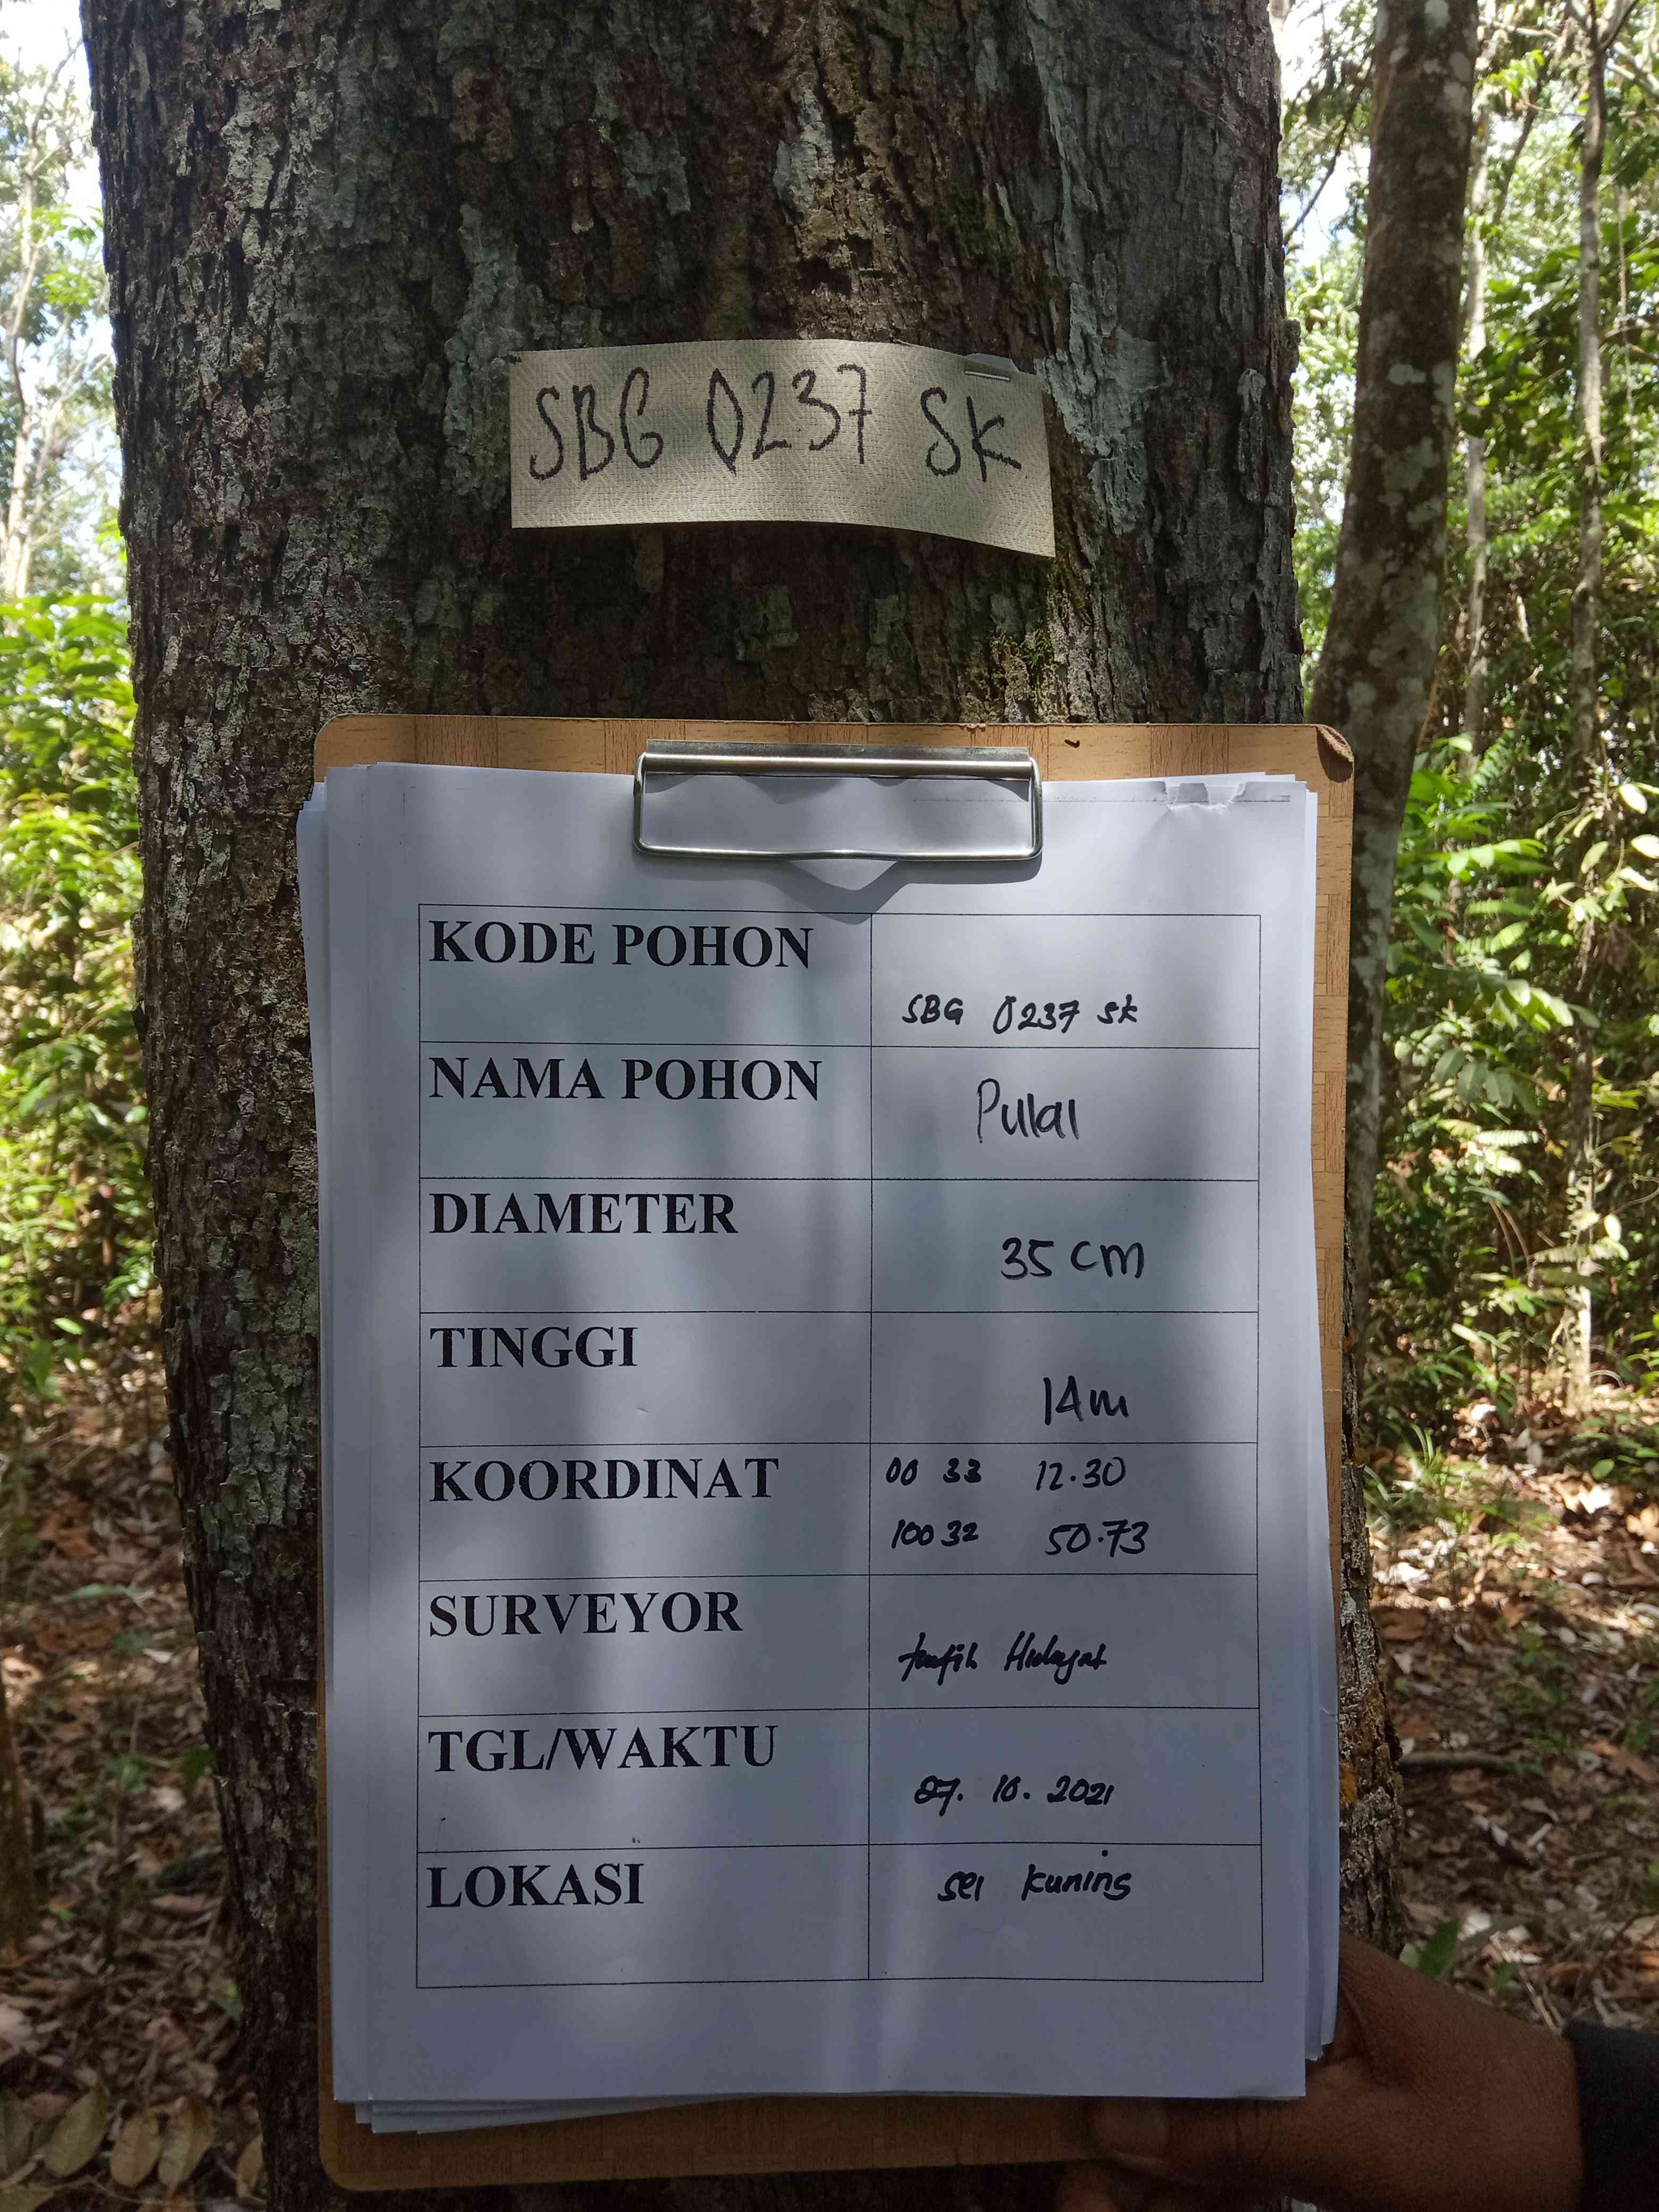 SBG 0237 SK
KODE POHON
SBG 0237 SK
NAMA POHON
Pulai
DIAMETER
35 cm
TINGGI
14 m
KOORDINAT
00 33 12.30
100 32 50.73
SURVEYOR
Hidayat
TGL/WAKTU
07. 10. 2021
LOKASI
sei kuning